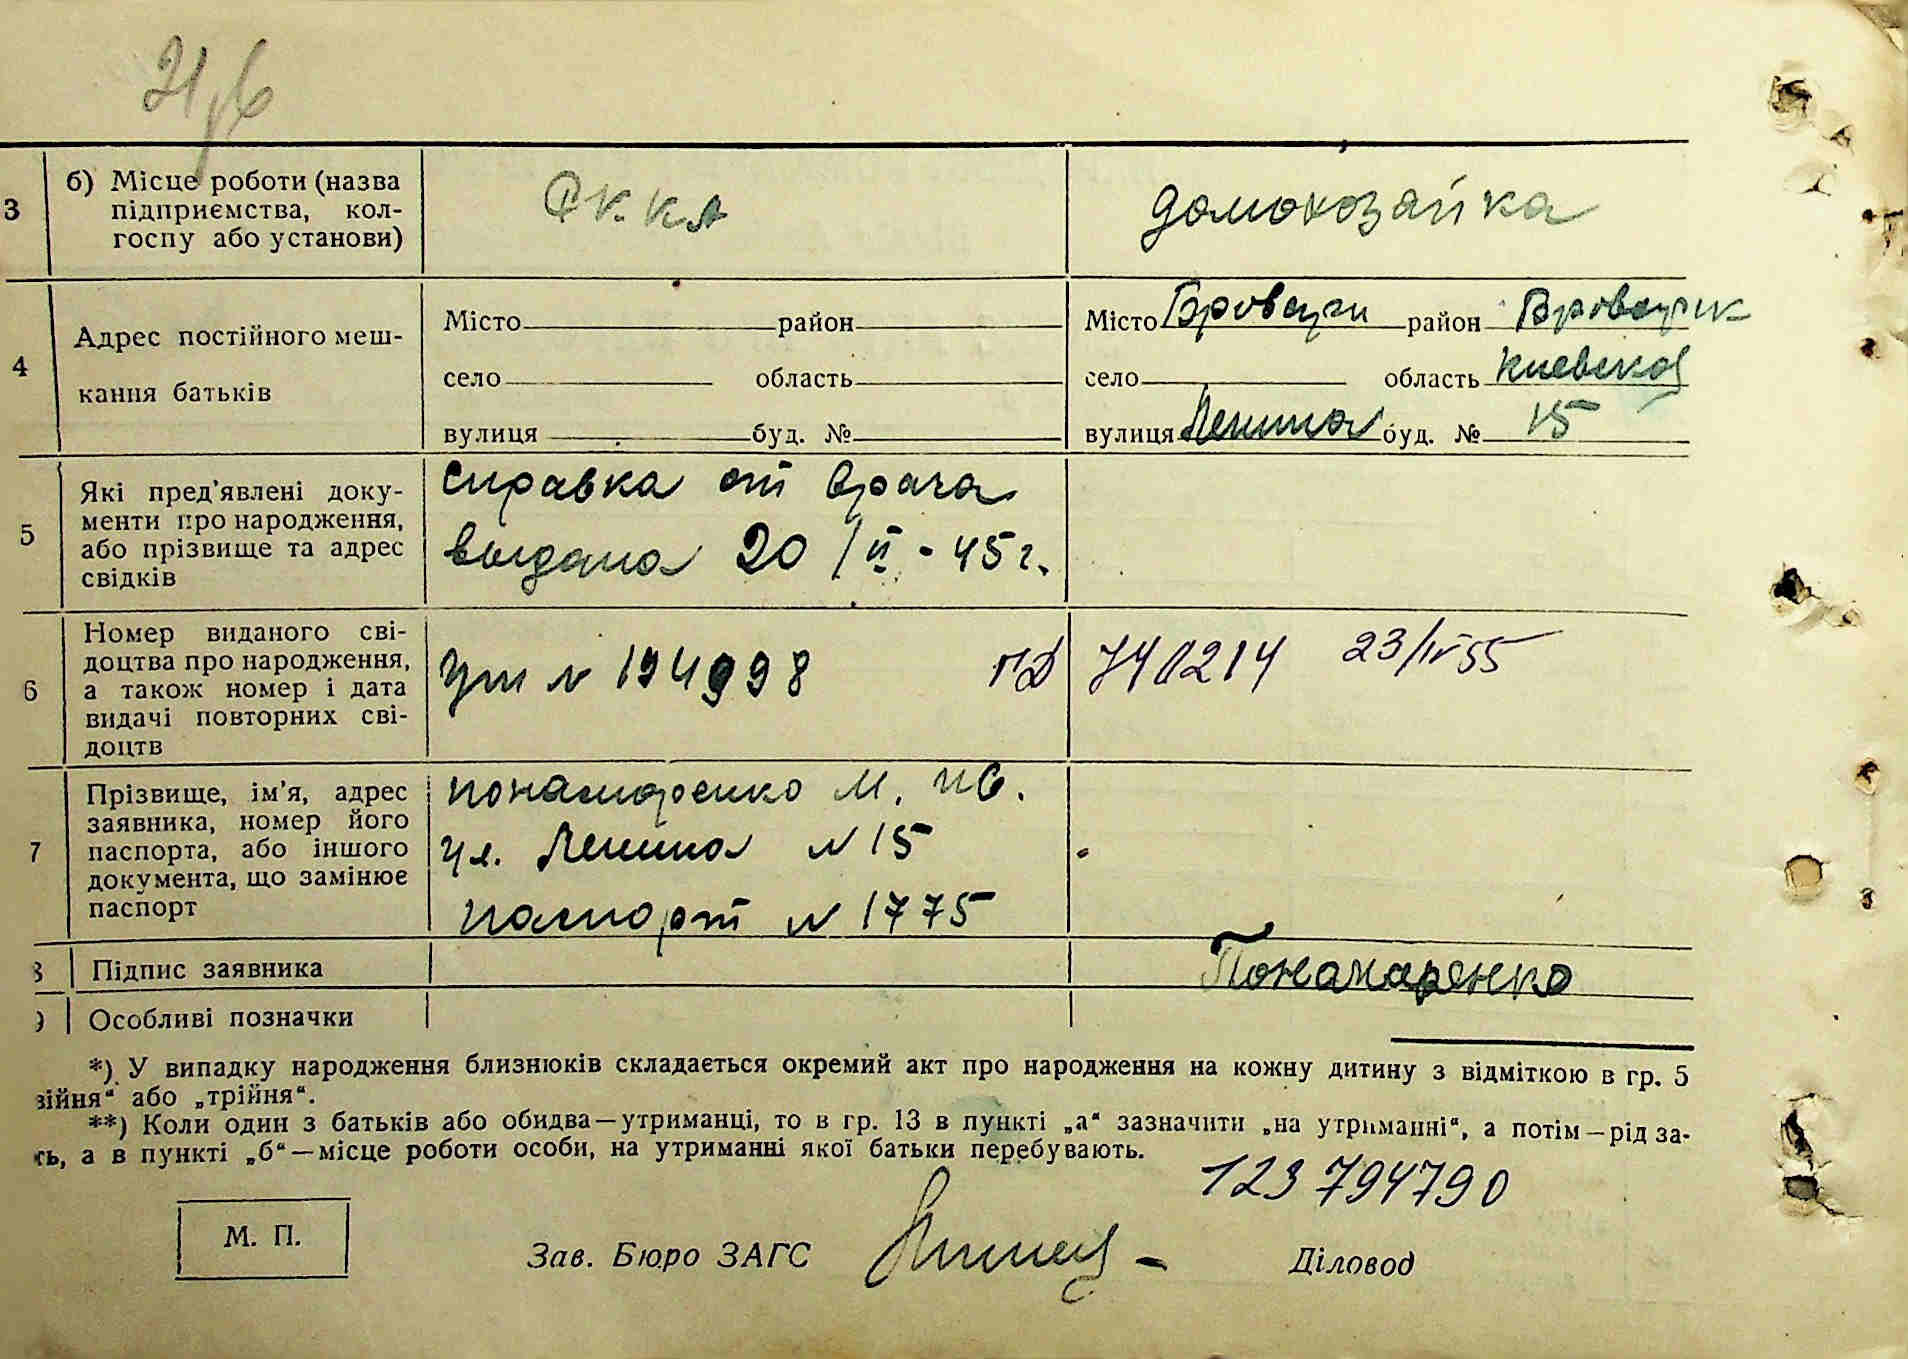 3 б) Місце роботи (назва
підприємства, кол-
госпу або установи)
РККА
домохозайка
4 Адрес постійного меш-
кання батьків
Місто район
село область
вулиця буд. №
Місто Бровары район Броварск
село область Киевской
вулиця Ленина буд. № 15
5 Які пред'явлені доку-
менти про народження,
або прізвище та адрес
свідків
справка от врача
выдана 20/VI - 45 г.
6 Номер виданого сві-
доцтва про народження,
а також номер і дата
видачі повторних сві-
доцтв
№ 194998 740214 23/IV 55
7 Прізвище, ім'я, адрес
заявника, номер його
паспорта, або іншого
документа, що замінює
паспорт
Понамаренко М.
ул. Ленина № 15
паспорт № 1775
8 Підпис заявника Понамаренко
9 Особливі позначки
*) У випадку народження близнюків складається окремий акт про народження на кожну дитину з відміткою в гр. 5
війня“ або „трійня“.
**) Коли один з батьків або обидва—утриманці, то в гр. 13 в пункті „а“ зазначити „на утриманні“, а потім—рід за-
ть, а в пункті „б“—місце роботи особи, на утриманні якої батьки перебувають.
123 794790
М. П.
Зав. Бюро ЗАГС
Діловод